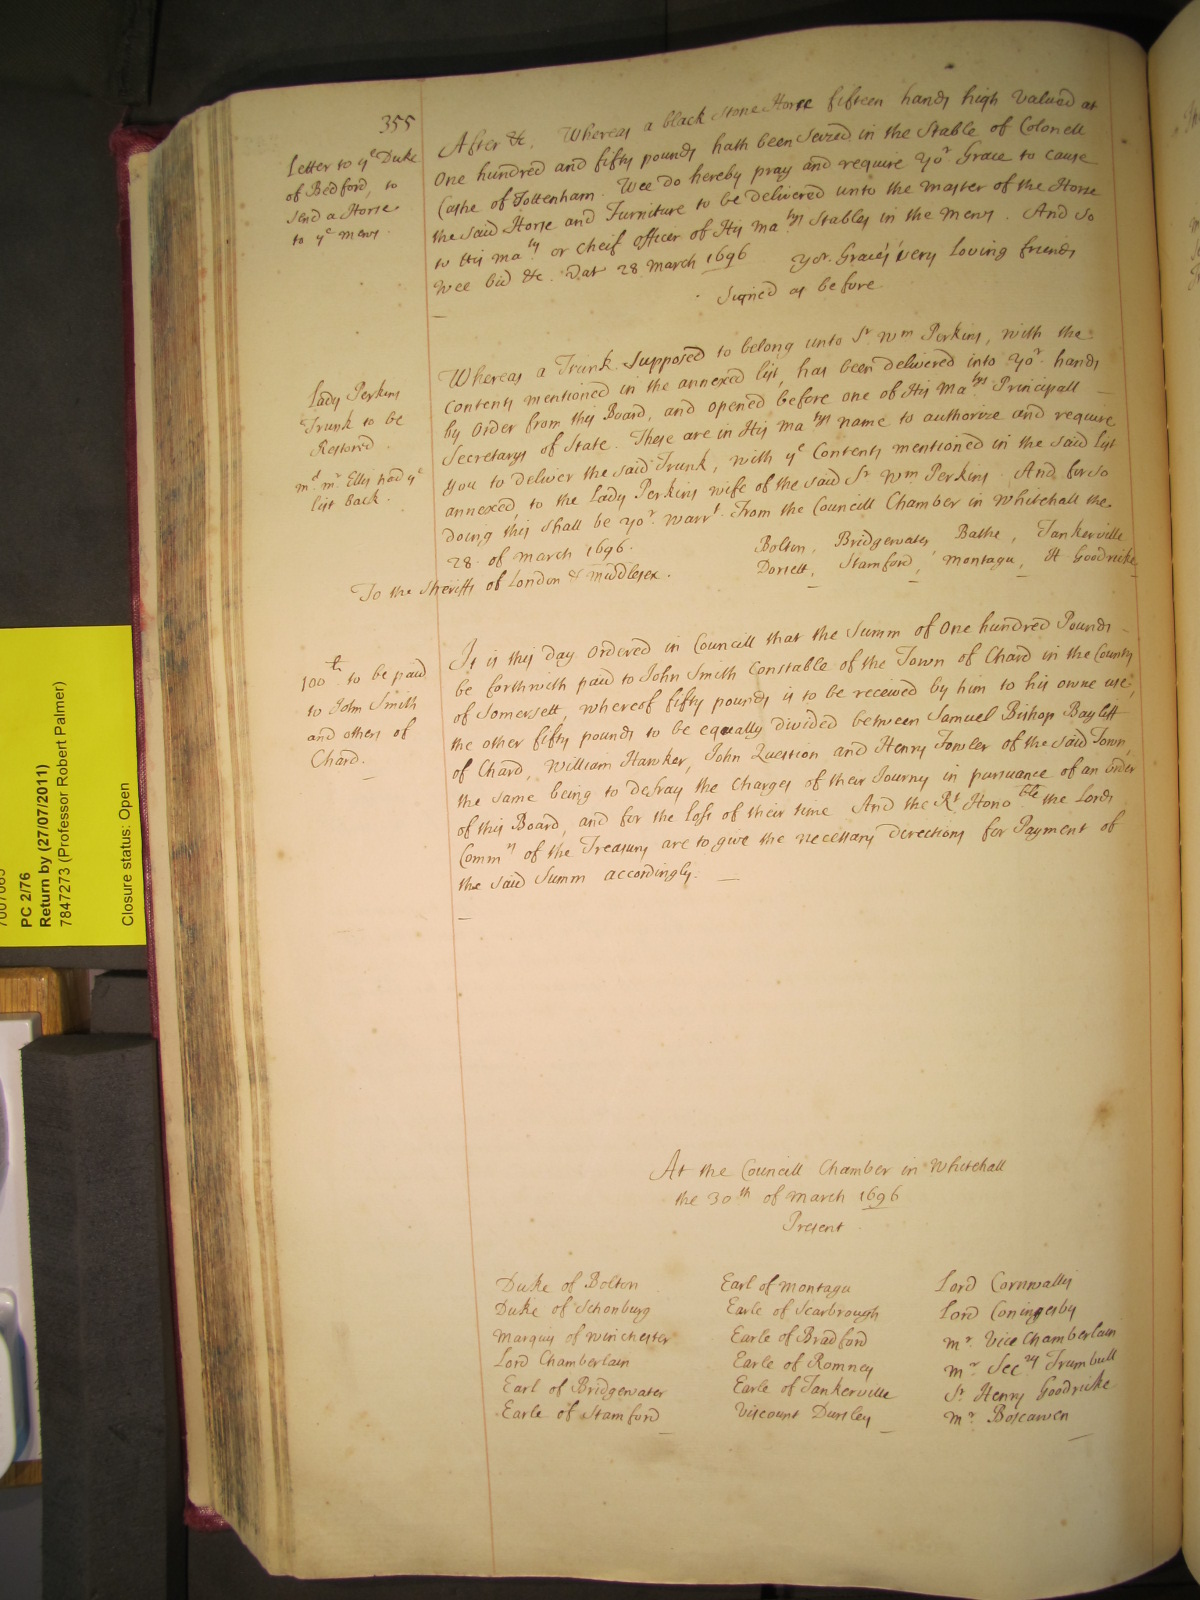 355
Letter to ye Duke
of Bedford, to
send a Horse
to ye mews.
After &c. Whereas a black stone Horse fifteen hands high valued at
One hundred and fifty pounds hath been seized in the Stable of Colonell
Cashe of Tottenham. Wee do hereby pray and require Yor Grace to cause
the said Horse and Furniture to be delivered unto the master of the Horse
to His maty or cheif officer of His matys Stables in the mews. And so
wee bid &c. Dat 28 March 1696 Yor. Graces very loving friends
Signed as before
Lady Perkins
Trunk to be
Restored
md mr Ellis had ye
list back.
Whereas a Trunk supposed to belong unto Sr Wm Perkins, with the
Contents mentioned in the annexed list, has been delivered into Yor hands
by Order from this Board, and opened before one of His Matys Principall
Secretarys of State. These are in His Matys name to authorize and require
you to deliver the said Trunk, with ye Contents mentioned in the said list
annexed, to the Lady Perkins wife of the said Sr Wm Perkins. And for so
doing this shall be yor. warrt. From the Councill Chamber in Whitehall the
28 of March 1696.
Bolton, Bridgewater, Bathe, Tankerville
Dorsett, Stamford, Montagu, H Goodricke
To the Sheriffs of London & Middlesex.
100 l. to be paid
to John Smith
and others of
Chard.
It is this day Ordered in Councill that the Summ of One hundred Pounds
be forthwith paid to John Smith Constable of the Town of Chard in the County
of Somersett, whereof fifty pounds is to be received by him to his owne use,
the other fifty pounds to be equally divided between Samuel Bishop Bayliff
of Chard, William Hawker, John Question and Henry Fowler of the said Town,
the same being to defray the Charges of their Journy in pursuance of an order
of this Board, and for the loss of their time And the Rt Honoble the Lords
Commrs of the Treasury are to give the necessary directions for Payment of
the said Summ accordingly.
At the Councill Chamber in Whitehall
the 30th of March 1696
Present
Duke of Bolton
Duke of Schonburg
Marquis of Winchester
Lord Chamberlain
Earl of Bridgewater
Earle of Stamford
Earl of Montagu
Earle of Scarbrough
Earle of Bradford
Earle of Romney
Earle of Tankerville
Viscount Dursley
Lord Cornwallis
Lord Coningesby
Mr. Vice Chamberlain
Mr Secry Trumbull
Sr Henry Goodricke
Mr. Boscawen
PC 2/76
Return by (27/07/2011)
7847273 (Professor Robert Palmer)
Closure status: Open